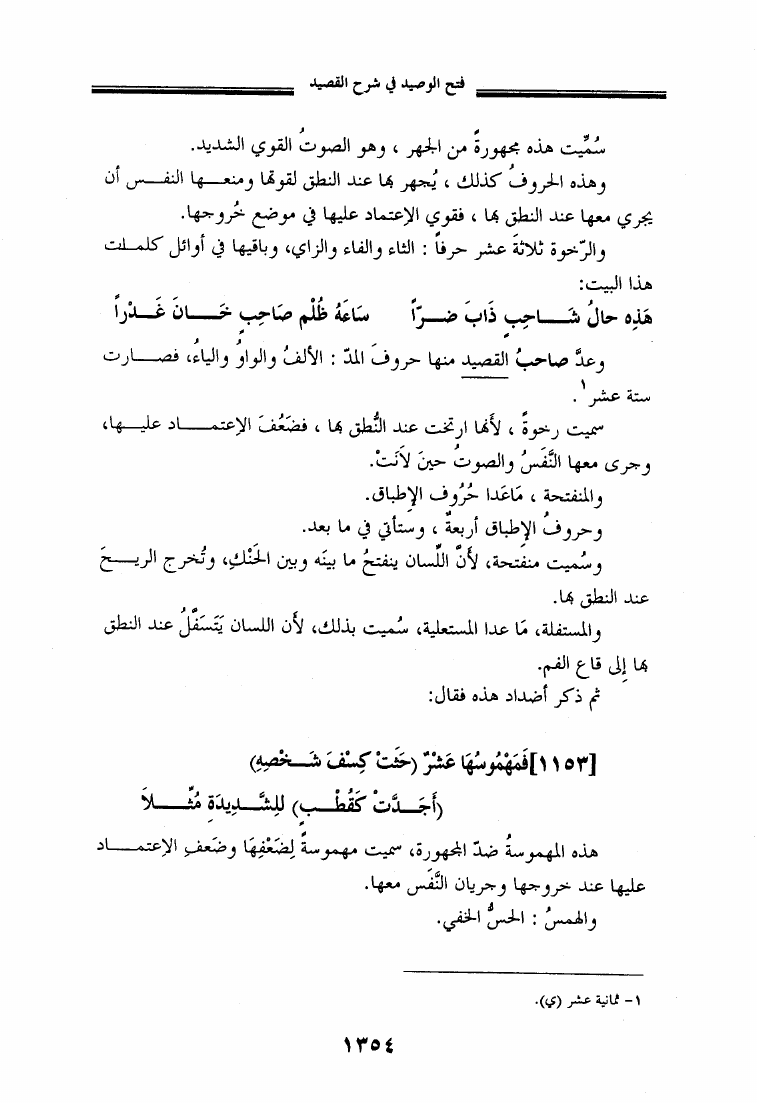 فتح الوصيد في شرح القصيد
سُمِّيت هذه مجهورةً من الجهر ، وهو الصوتُ القوي الشديد.
وهذه الحروفُ كذلك ، يُجهر بها عند النطق لقوتها ومنعها النفس أن
يجري معها عند النطق بها ، فقوي الإعتماد عليها في موضع خُروجها.
والرّخوة ثلاثةَ عشر حرفاً : الثاء والفاء والزاي، وباقيها في أوائل كلمات
هذا البيت:
هَذِه حالُ شَاحِبٍ ذَابَ ضرّاً سَاعَةُ ظُلْمِ صَاحِبٍ خَانَ غَدْراً
وعدَّ صاحبُ القصيد منها حروفَ المدّ : الألفُ والواوُ والياءُ، فصارت
ستة عشر¹.
سميت رخوةً ، لأنها ارتخت عند النُّطق بها ، فضَعُفَ الإعتماد عليها،
وجرى معها النَّفَسُ والصوتُ حينَ لاَنَتْ.
والمنفتحة ، مَاعَدا حُرُوف الإطباق.
وحروفُ الإطباق أربعةٌ ، وستأتي في ما بعد.
وسُميت منفتحة، لأنَّ اللِّسان ينفتحُ ما بينَه وبين الحَنْكِ، وتُخرج الريحَ
عند النطق بها.
والمستفلة، مَا عدا المستعلية، سُميت بذلك، لأن اللسان يَتَسَفَّلُ عند النطق
بها إلى قاع الفم.
ثم ذكر أضداد هذه فقال:
[١١٥٣]فَمَهْمُوسُهَا عَشْرٌ (حَثَتْ كِسْفَ شَخْصِهِ)
(أَجَدَّتْ كَقُطْبٍ) لِلشَّدِيدَةِ مُثِّلاَ
هذه المهموسةُ ضدّ المجهورة، سميت مهموسةً لِضَعْفِهَا وضَعفِ الإعتماد
عليها عند خروجها وجريان النَّفَس معها.
والهمسُ : الحسُّ الخفي.
١- ثمانية عشر (ي).
١٣٥٤